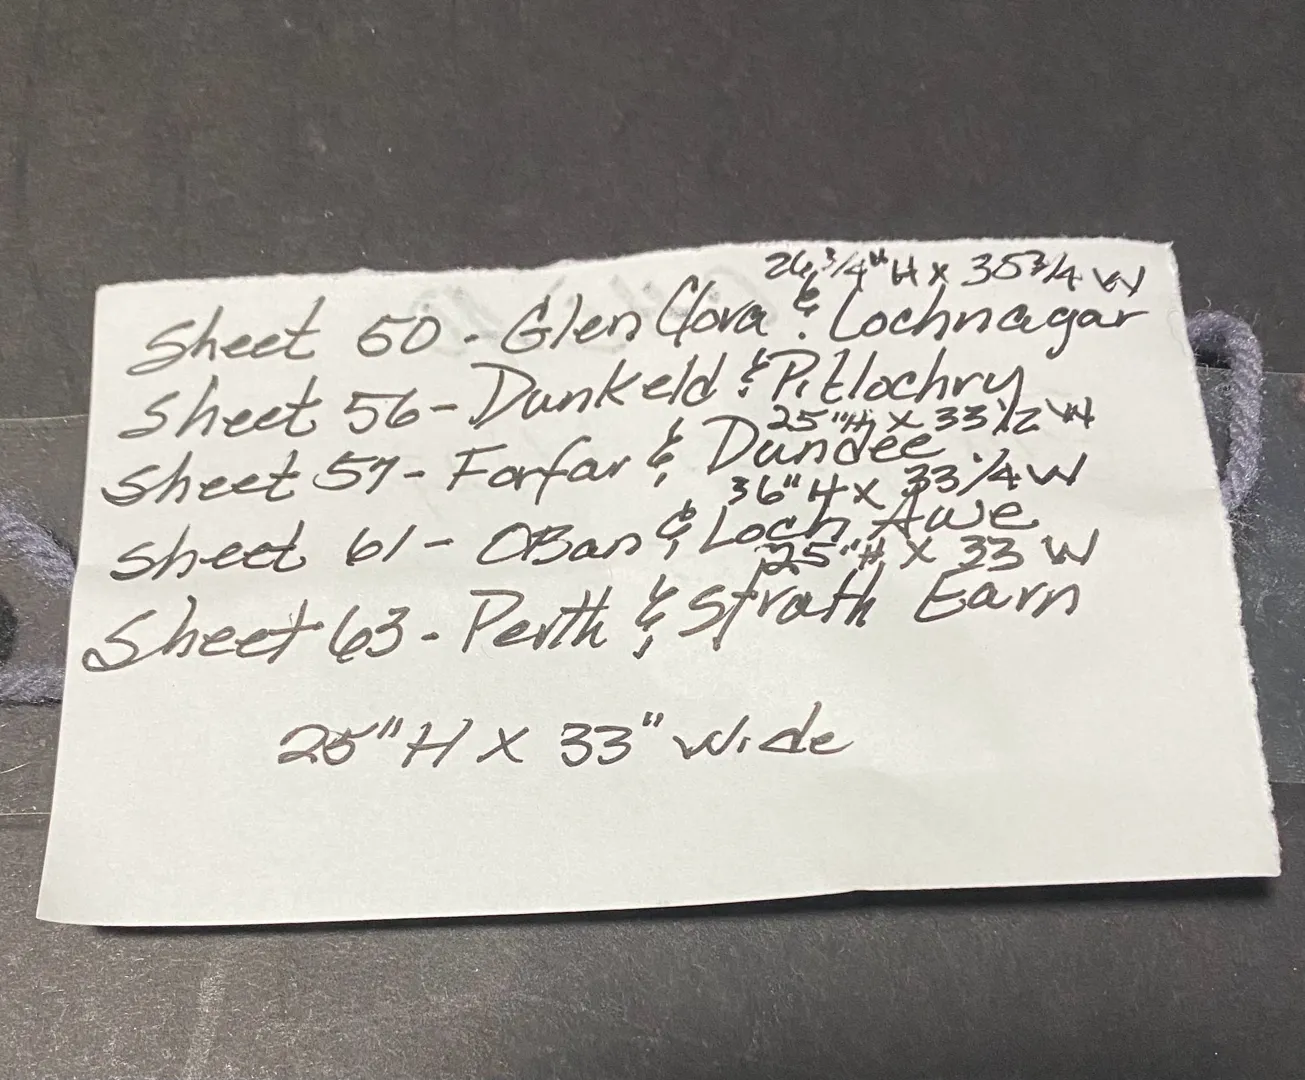 26 3/4" H x 35 3/4 W
Sheet 50 - Glen Clova & Lochnagar
Sheet 56 - Dunkeld & Pitlochry
25" H x 33 1/2 W
Sheet 57 - Forfar & Dundee
36" H x 33 1/4 W
Sheet 61 - OBan & Loch Awe
25" H x 33 W
Sheet 63 - Perth & Strath Earn
25" H x 33" Wide